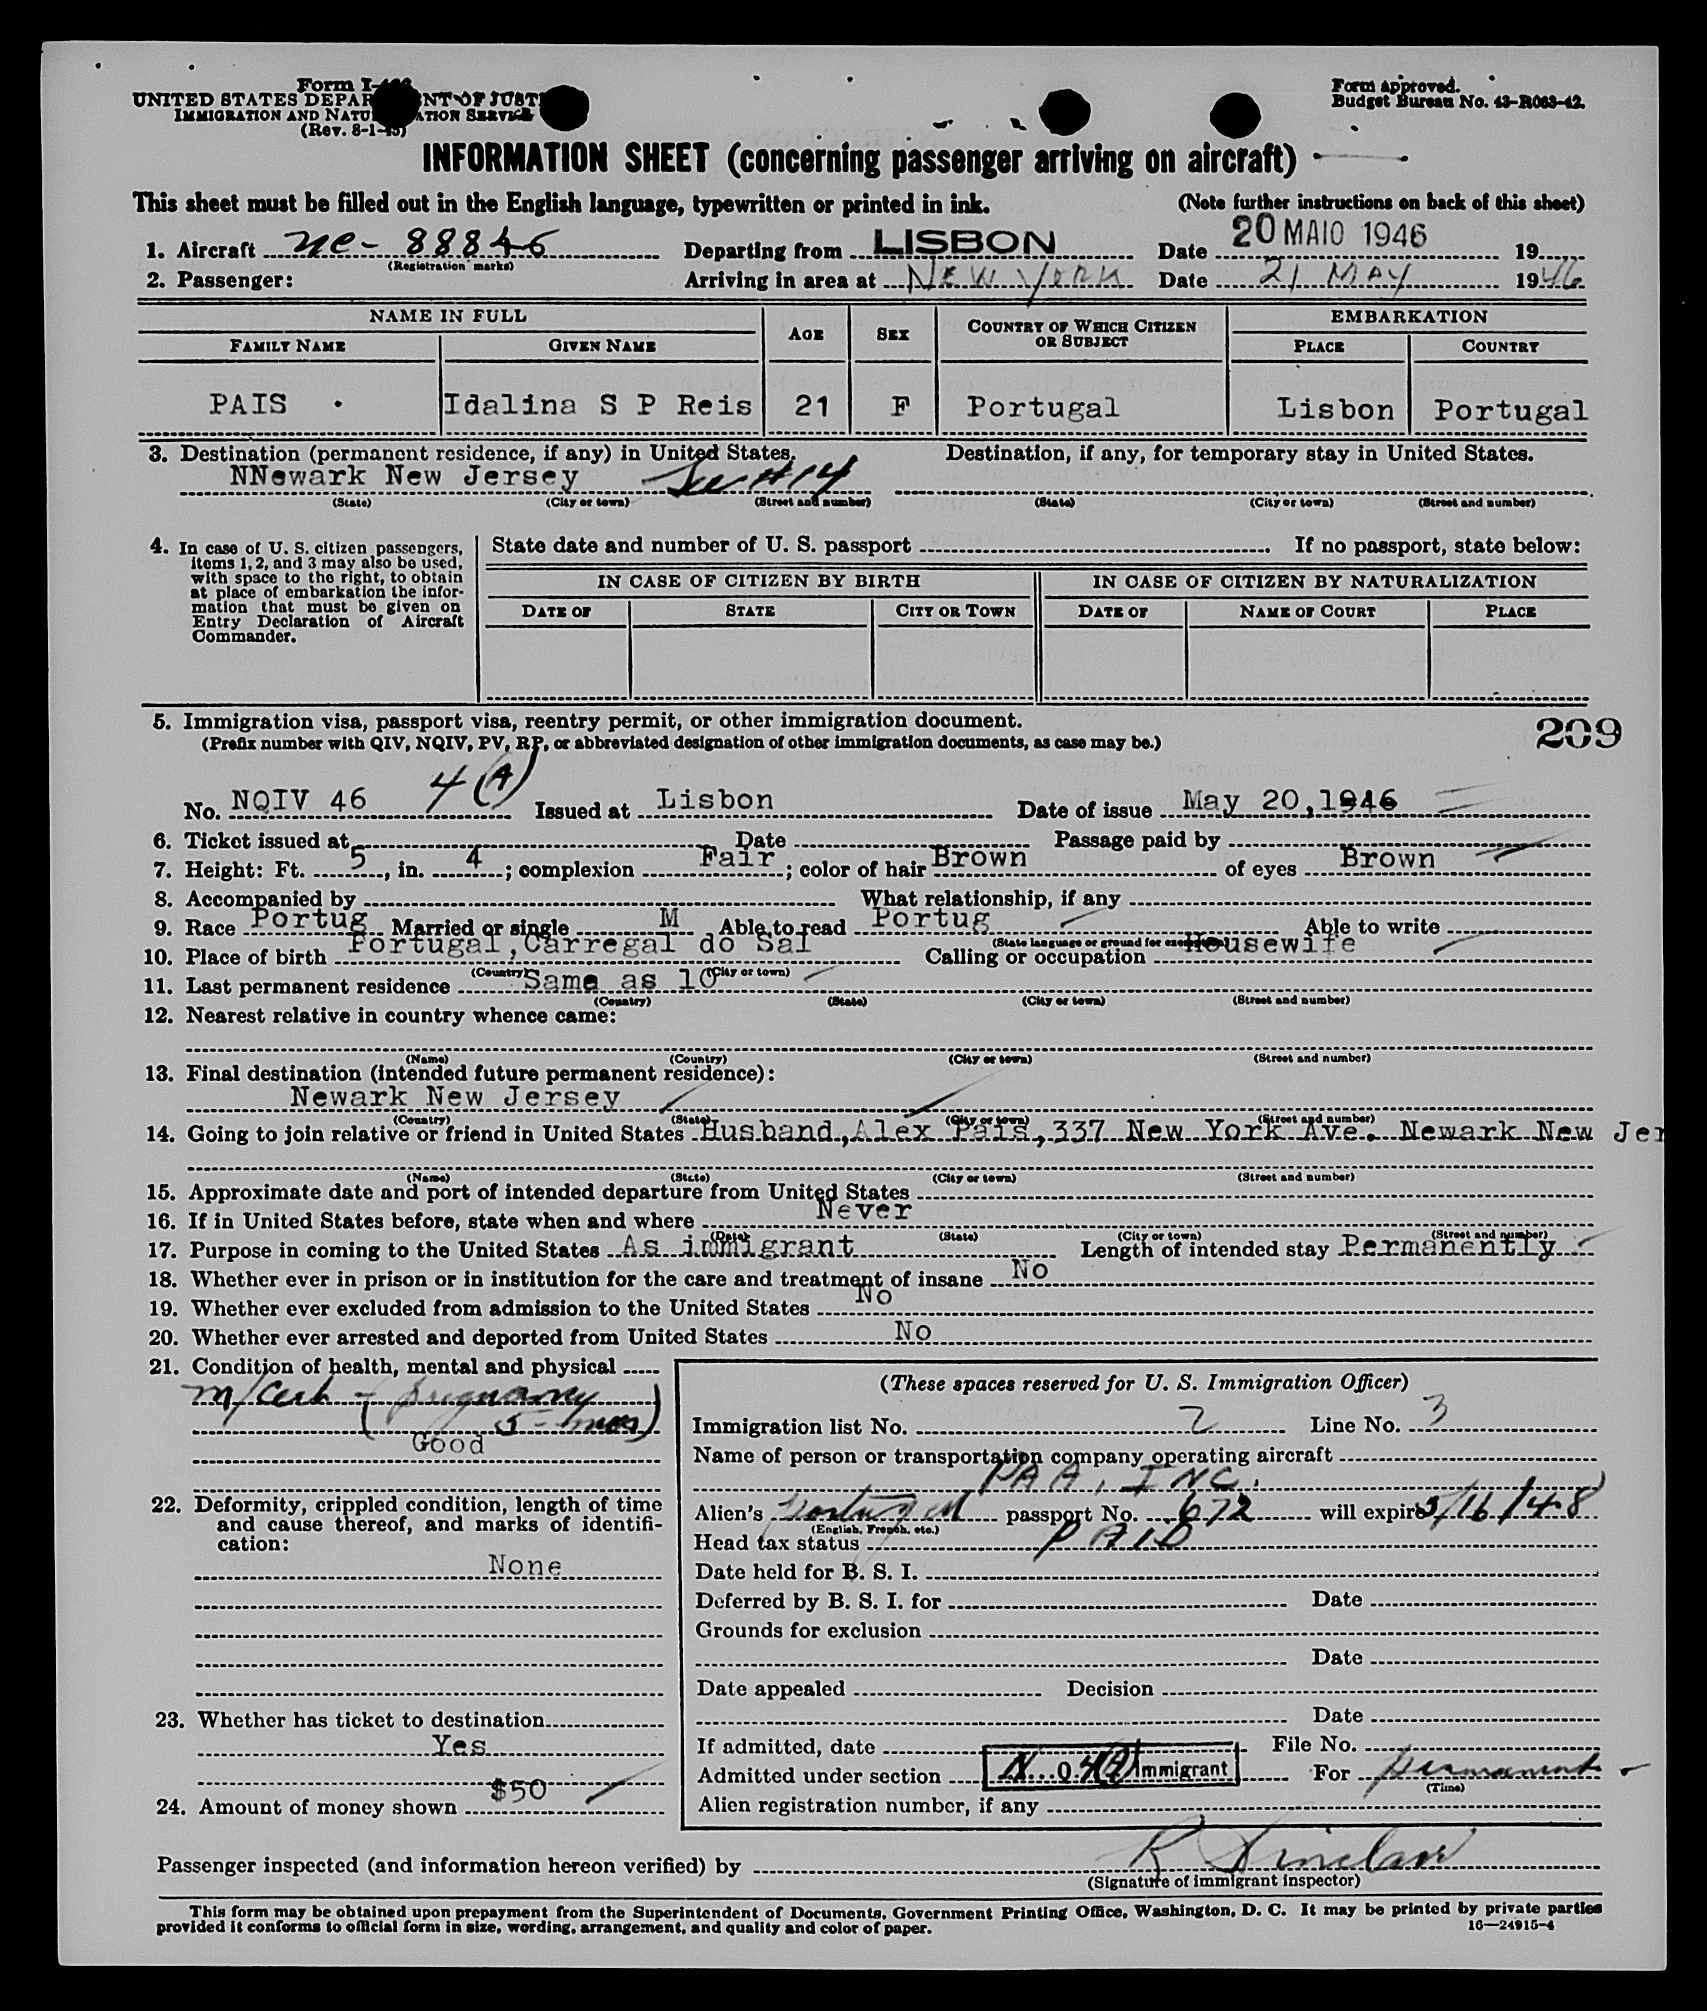 Form I-
UNITED STATES DEPARTMENT OF JUSTICE
IMMIGRATION AND NATURALIZATION SERVICE
(Rev. 8-1-45)
Form approved.
Budget Bureau No. 43-R063-42.
INFORMATION SHEET (concerning passenger arriving on aircraft)
This sheet must be filled out in the English language, typewritten or printed in ink. (Note further instructions on back of this sheet)
1. Aircraft NC- 88846 Departing from LISBON Date 20 MAIO 1946 19
(Registration marks)
2. Passenger: Arriving in area at NEW YORK Date 21 MAY 1946
NAME IN FULL AGE SEX COUNTRY OF WHICH CITIZEN OR SUBJECT EMBARKATION
FAMILY NAME GIVEN NAME PLACE COUNTRY
PAIS Idalina S P Reis 21 F Portugal Lisbon Portugal
3. Destination (permanent residence, if any) in United States. Destination, if any, for temporary stay in United States.
NNewark New Jersey See #14
(State) (City or town) (Street and number) (State) (City or town) (Street and number)
4. In case of U. S. citizen passengers,
items 1, 2, and 3 may also be used,
with space to the right, to obtain
at place of embarkation the infor-
mation that must be given on
Entry Declaration of Aircraft
Commander.
State date and number of U. S. passport If no passport, state below:
IN CASE OF CITIZEN BY BIRTH IN CASE OF CITIZEN BY NATURALIZATION
DATE OF STATE CITY OR TOWN DATE OF NAME OF COURT PLACE
5. Immigration visa, passport visa, reentry permit, or other immigration document. 209
(Prefix number with QIV, NQIV, PV, RP, or abbreviated designation of other immigration documents, as case may be.)
No. NQIV 46 4(A) Issued at Lisbon Date of issue May 20,1946
6. Ticket issued at Date Passage paid by
7. Height: Ft. 5, in. 4; complexion Fair; color of hair Brown of eyes Brown
8. Accompanied by What relationship, if any
9. Race Portug Married or single M Able to read Portug Able to write
(State language or ground for exemption)
10. Place of birth Portugal,Carregal do Sal Calling or occupation Housewife
(Country) (City or town)
11. Last permanent residence Same as 10
(Country) (State) (City or town) (Street and number)
12. Nearest relative in country whence came:
(Name) (Country) (City or town) (Street and number)
13. Final destination (intended future permanent residence):
Newark New Jersey
(Country) (State) (City or town) (Street and number)
14. Going to join relative or friend in United States Husband,Alex Pais,337 New York Ave. Newark New Jer
(Name) (State) (City or town) (Street and number)
15. Approximate date and port of intended departure from United States
16. If in United States before, state when and where Never
(Date) (State) (City or town) (Street and number)
17. Purpose in coming to the United States As immigrant Length of intended stay Permanently
18. Whether ever in prison or in institution for the care and treatment of insane No
19. Whether ever excluded from admission to the United States No
20. Whether ever arrested and deported from United States No
21. Condition of health, mental and physical
m/cert - (pregnancy
5 - mos)
Good
22. Deformity, crippled condition, length of time
and cause thereof, and marks of identifi-
cation:
None
23. Whether has ticket to destination
Yes
24. Amount of money shown $50
(These spaces reserved for U. S. Immigration Officer)
Immigration list No. 2 Line No. 3
Name of person or transportation company operating aircraft
PAA, INC.
Alien's Portuguese passport No. 672 will expire 5/16/48
(English, French, etc.)
Head tax status PAID
Date held for B. S. I.
Deferred by B. S. I. for Date
Grounds for exclusion
Date
Date appealed Decision
Date
If admitted, date File No.
Admitted under section N.Q.4(A) Immigrant For permanent
(Time)
Alien registration number, if any
Passenger inspected (and information hereon verified) by R Sinclair
(Signature of immigrant inspector)
This form may be obtained upon prepayment from the Superintendent of Documents, Government Printing Office, Washington, D. C. It may be printed by private parties
provided it conforms to official form in size, wording, arrangement, and quality and color of paper. 16—24915-4